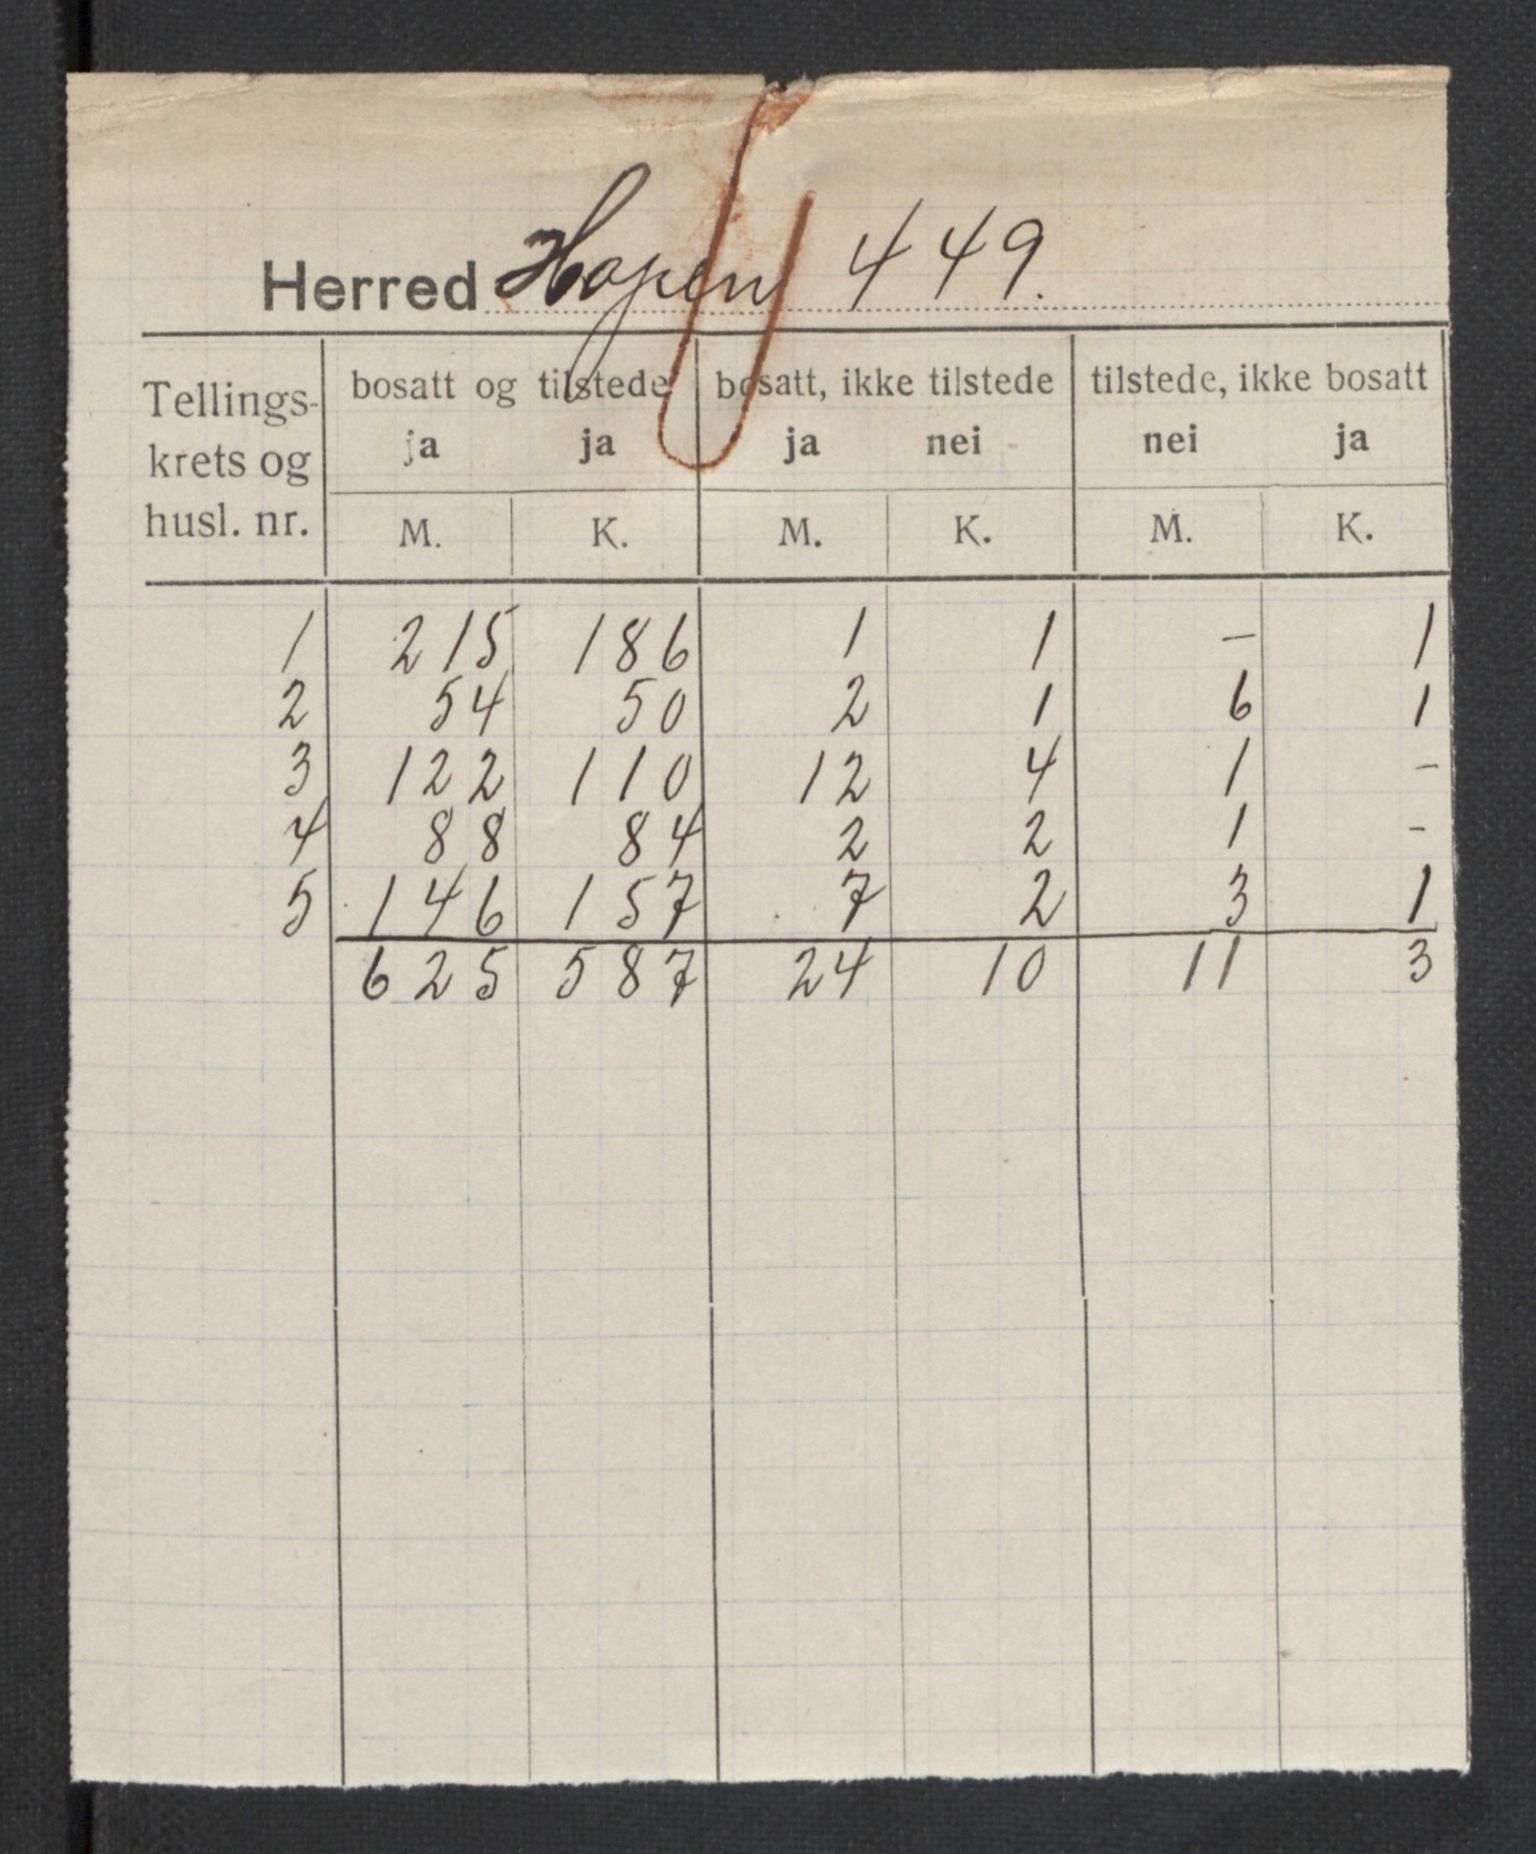 Herred Hopen 449.
Tellings- bosatt og tilstede bosatt, ikke tilstede tilstede, ikke bosatt
krets og ja ja ja nei nei ja
husl. nr. M. K. M. K. M. K.
1 215 186 1 1 – 1
2 54 50 2 1 6 1
3 122 110 12 4 1 –
4 88 84 2 2 1 –
5 146 157 7 2 3 1
625 587 24 10 11 3